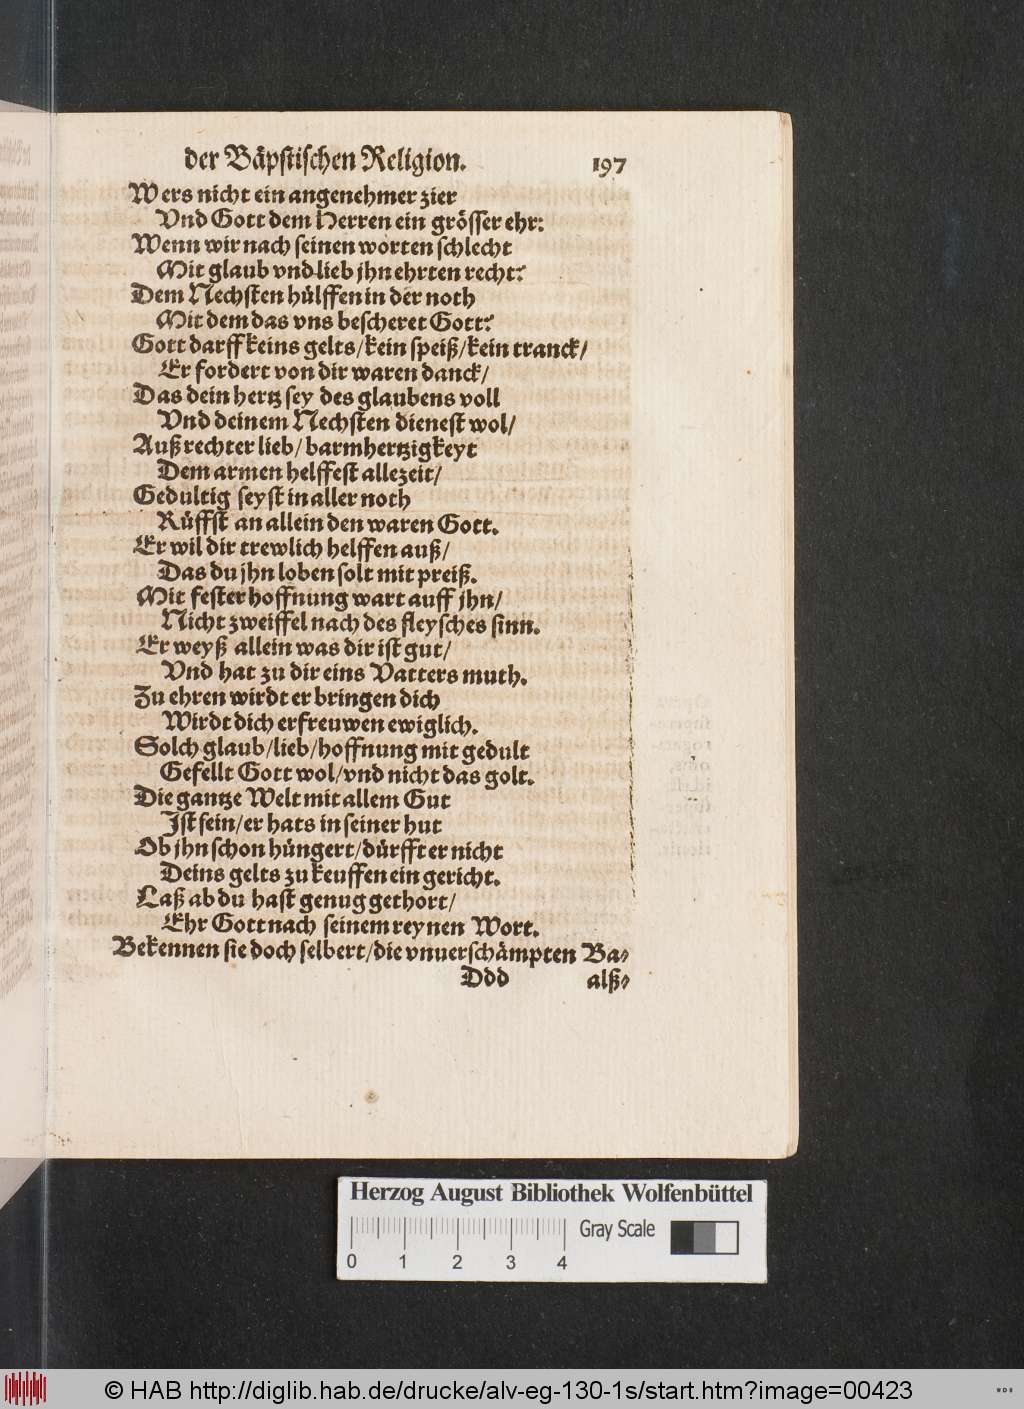 der Bäpstischen Religion. 197
Wers nicht ein angenehmer zier
Vnd Gott dem Herren ein grösser ehr:
Wenn wir nach seinen worten schlecht
Mit glaub vnd lieb jhn ehrten recht?
Dem Nechsten hülffen in der noth
Mit dem das vns bescheret Gott?
Gott darff keins gelts/kein speiß/kein tranck/
Er fordert von dir waren danck/
Das dein hertz sey des glaubens voll
Vnd deinem Nechsten dienest wol/
Auß rechter lieb/ barmhertzigkeyt
Dem armen helffest allezeit/
Gedultig seyst in aller noth
Rüffst an allein den waren Gott.
Er wil dir trewlich helffen auß/
Das du jhn loben solt mit preiß.
Mit fester hoffnung wart auff jhn/
Nicht zweiffel nach des fleysches sinn.
Er weyß allein was dir ist gut/
Vnd hat zu dir eins Vatters muth.
Zu ehren wirdt er bringen dich
Wirdt dich erfreuwen ewiglich.
Solch glaub/lieb/hoffnung mit gedult
Gefellt Gott wol/vnd nicht das golt.
Die gantze Welt mit allem Gut
Ist sein/er hats in seiner hut
Ob jhn schon hüngert/dürfft er nicht
Deins gelts zu keuffen ein gericht.
Laß ab du hast genug gethort/
Ehr Gott nach seinem reynen Wort.
Bekennen sie doch selbert/die vnuerschämpten Ba-
Ddd alß-
Herzog August Bibliothek Wolfenbüttel
Gray Scale
0 1 2 3 4
© HAB http://diglib.hab.de/drucke/alv-eg-130-1s/start.htm?image=00423